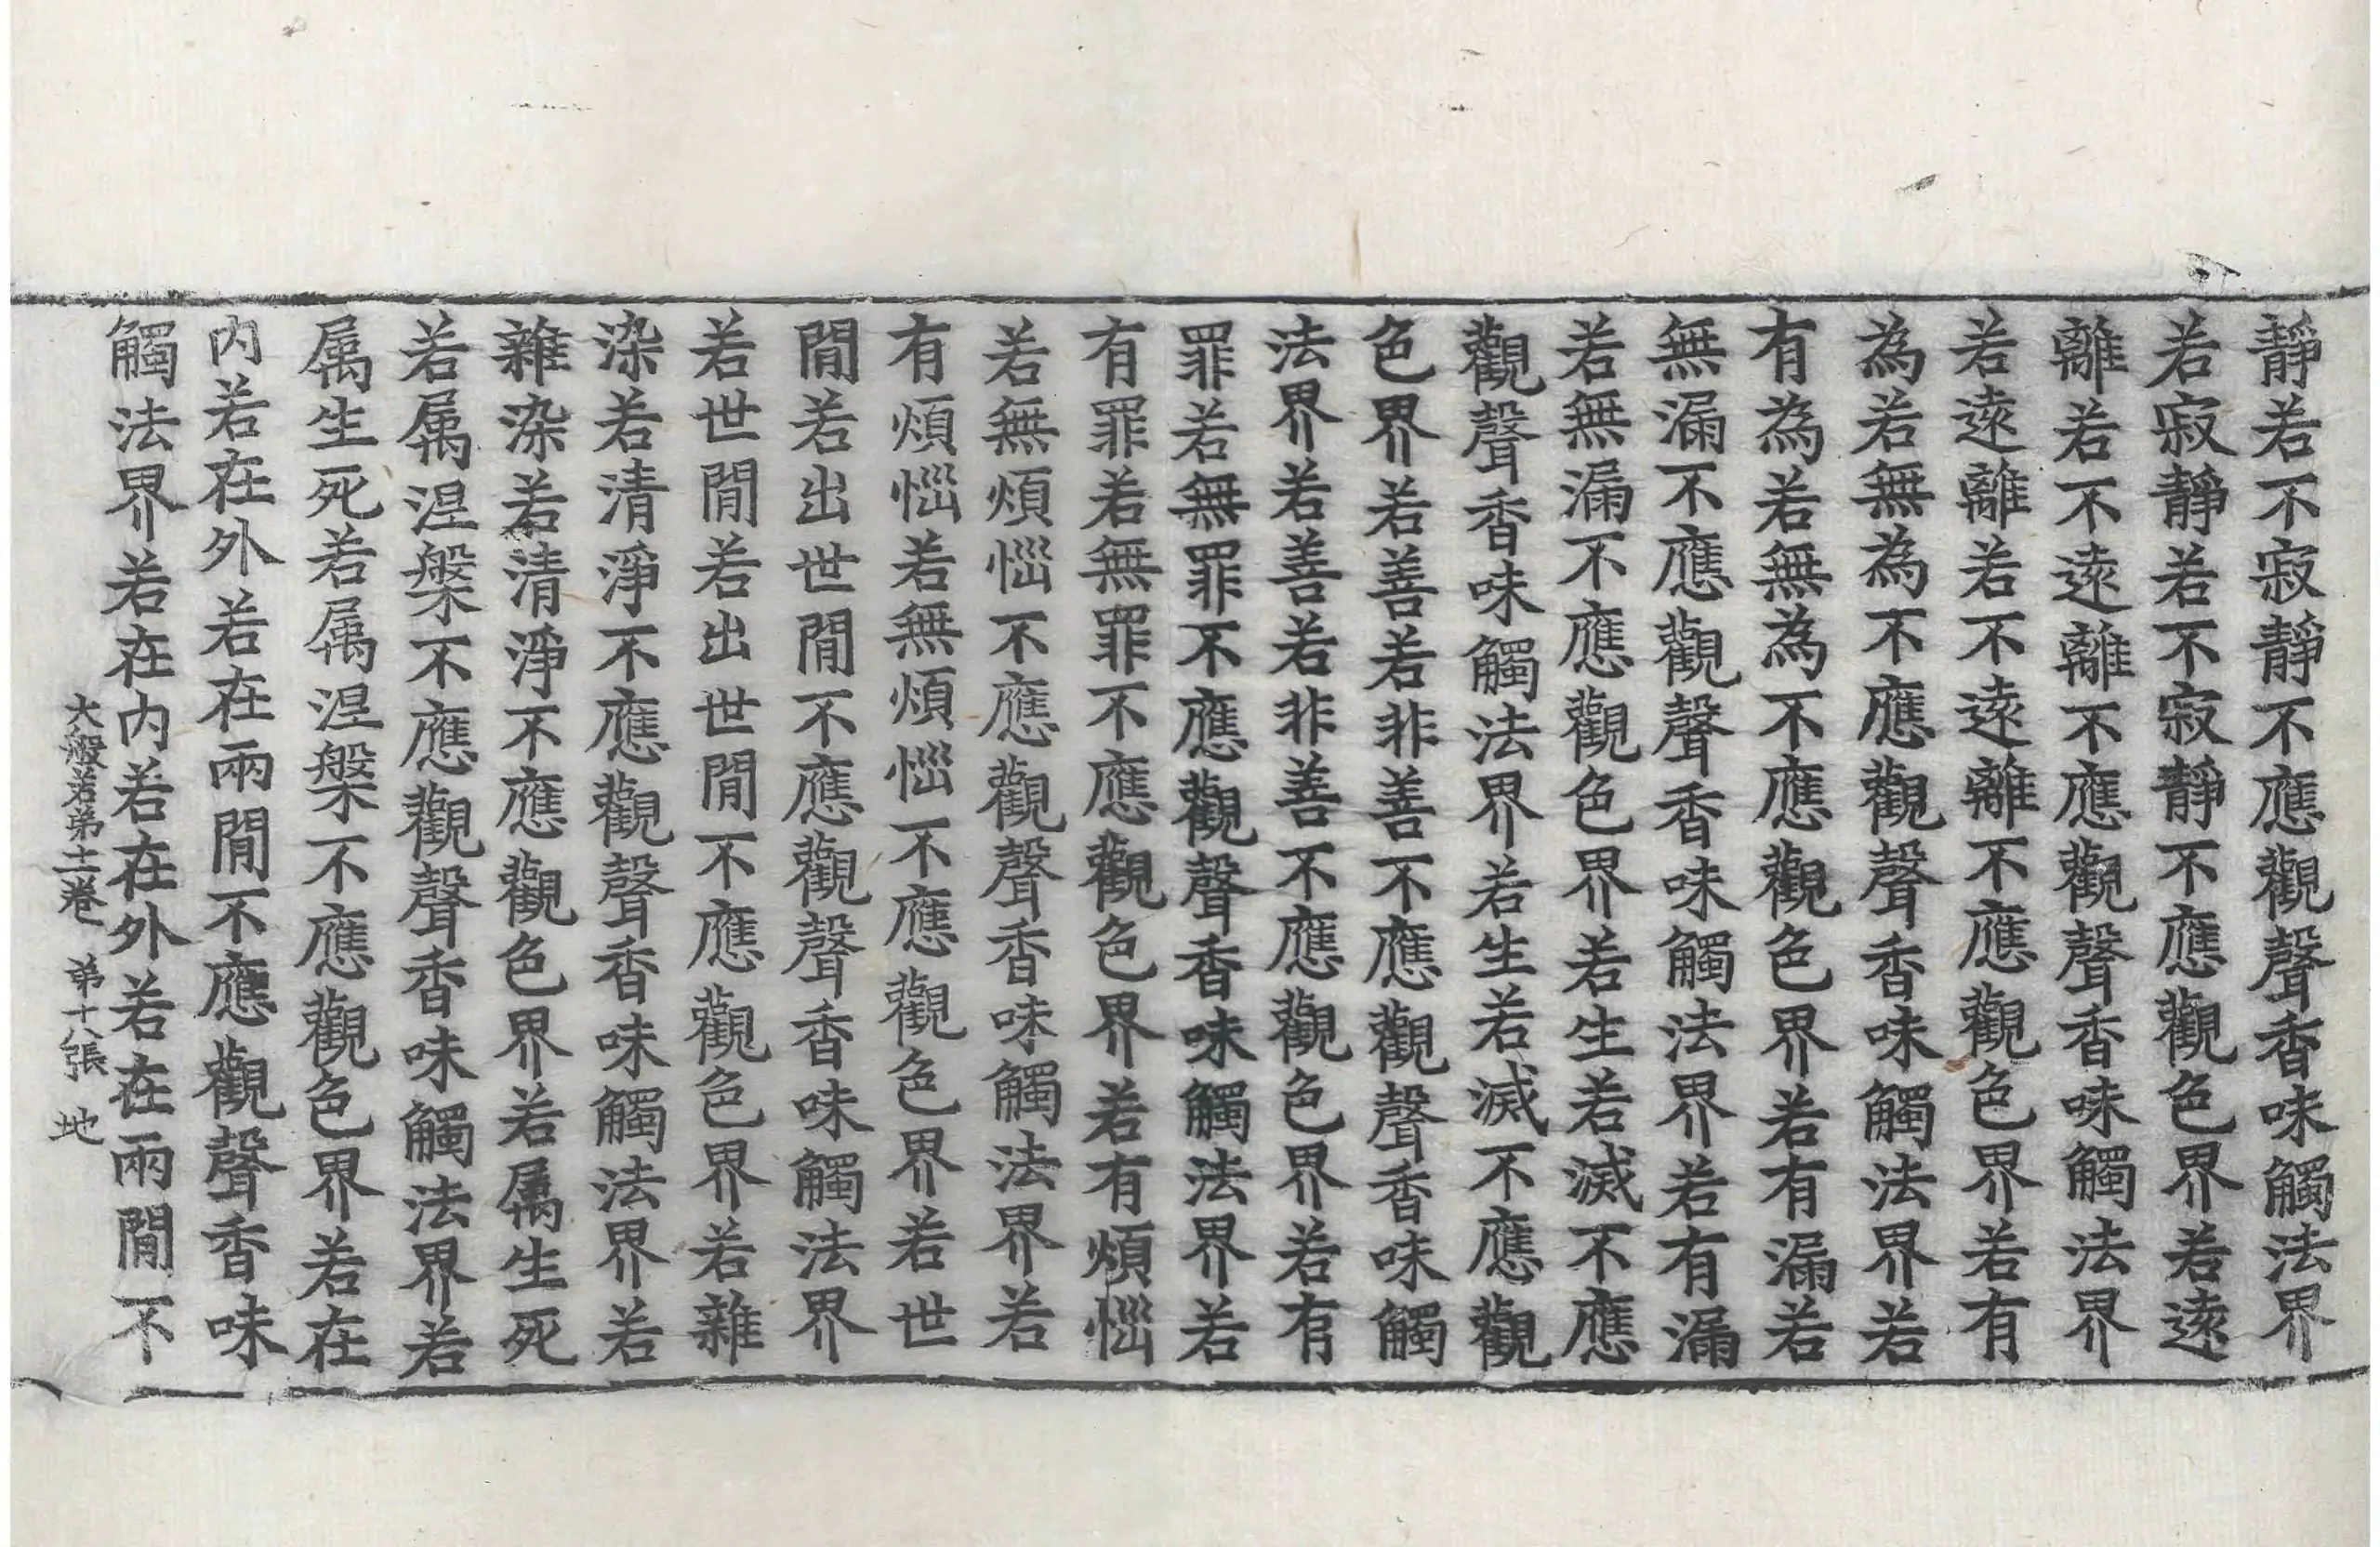 靜若不寂靜不應觀聲香味觸法界
若寂靜若不寂靜不應觀色界若遠
離若不遠離不應觀聲香味觸法界
若遠離若不遠離不應觀色界若有
為若無為不應觀聲香味觸法界若
有為若無為不應觀色界若有漏若
無漏不應觀聲香味觸法界若有漏
若無漏不應觀色界若生若滅不應
觀聲香味觸法界若生若滅不應觀
色界若善若非善不應觀聲香味觸
法界若善若非善不應觀色界若有
罪若無罪不應觀聲香味觸法界若
有罪若無罪不應觀色界若有煩惱
若無煩惱不應觀聲香味觸法界若
有煩惱若無煩惱不應觀色界若世
閒若出世閒不應觀聲香味觸法界
若世閒若出世閒不應觀色界若雜
染若清淨不應觀聲香味觸法界若
雜染若清淨不應觀色界若属生死
若属涅槃不應觀聲香味觸法界若
属生死若属涅槃不應觀色界若在
內若在外若在兩閒不應觀聲香味
觸法界若在內若在外若在兩閒不
大般若弟十二卷 弟十八張 地